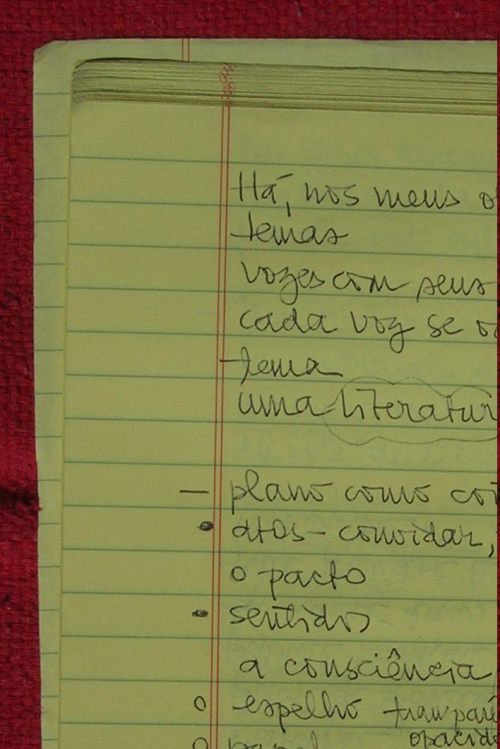 Há, nos meus o
temas
vozes com seus
cada voz se o
tema
uma literatur
— plano como co
• atos – convidar,
o pacto
• sentidos
a consciência
o espelho transpare
opacida
o papel